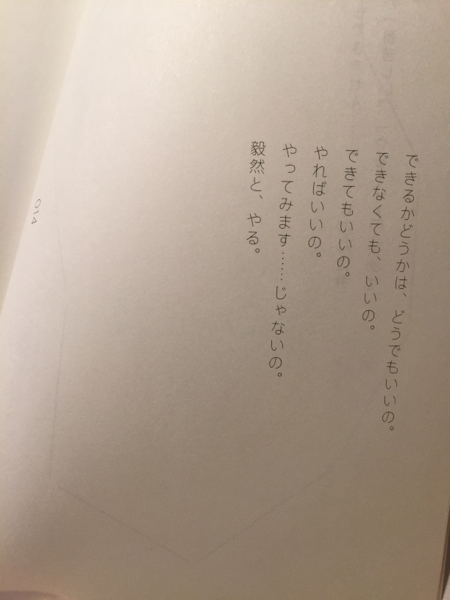 できるかどうかは、どうでもいいの。
できなくても、いいの。
できてもいいの。
やればいいの。
やってみます……じゃないの。
毅然と、やる。